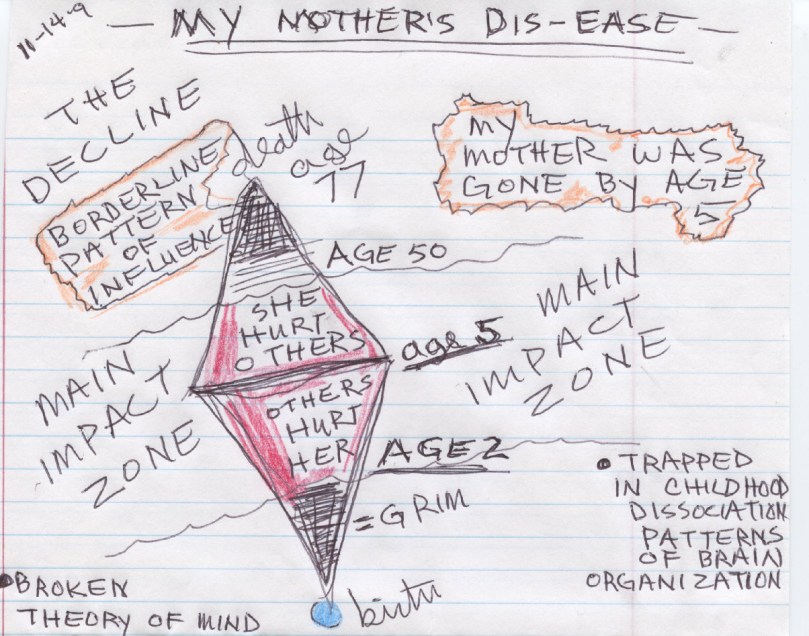 11-14-9
— MY MOTHER'S DIS-EASE —
THE
DECLINE
BORDERLINE
PATTERN
OF
INFLUENCE
death
age
77
MY
MOTHER WAS
GONE BY AGE
5
AGE 50
SHE
HURT
OTHERS
age 5
MAIN
IMPACT
ZONE
MAIN
IMPACT
ZONE
OTHERS
HURT
HER
AGE 2
= GRIM
• TRAPPED
IN CHILDHOOD
DISSOCIATION
PATTERNS
OF BRAIN
ORGANIZATION
• BROKEN
THEORY OF MIND
birth